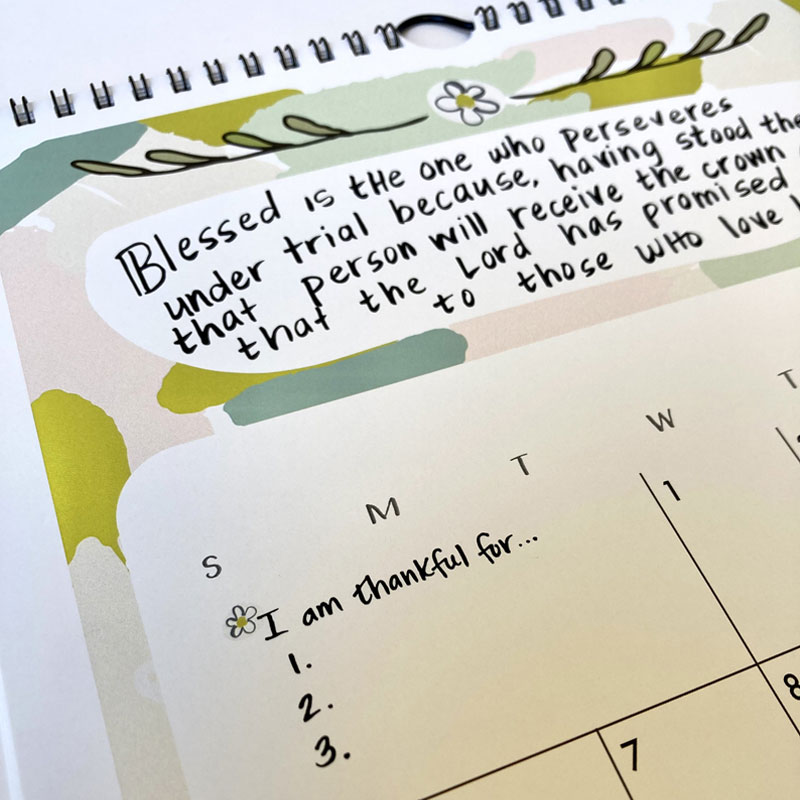 Blessed is tHe one who perseveres
under trial because, having stood the
that person will receive the crown
that the Lord has promised
to those wHo love
S M T W T
I am thankful for...
1.
2.
3.
1
7 8